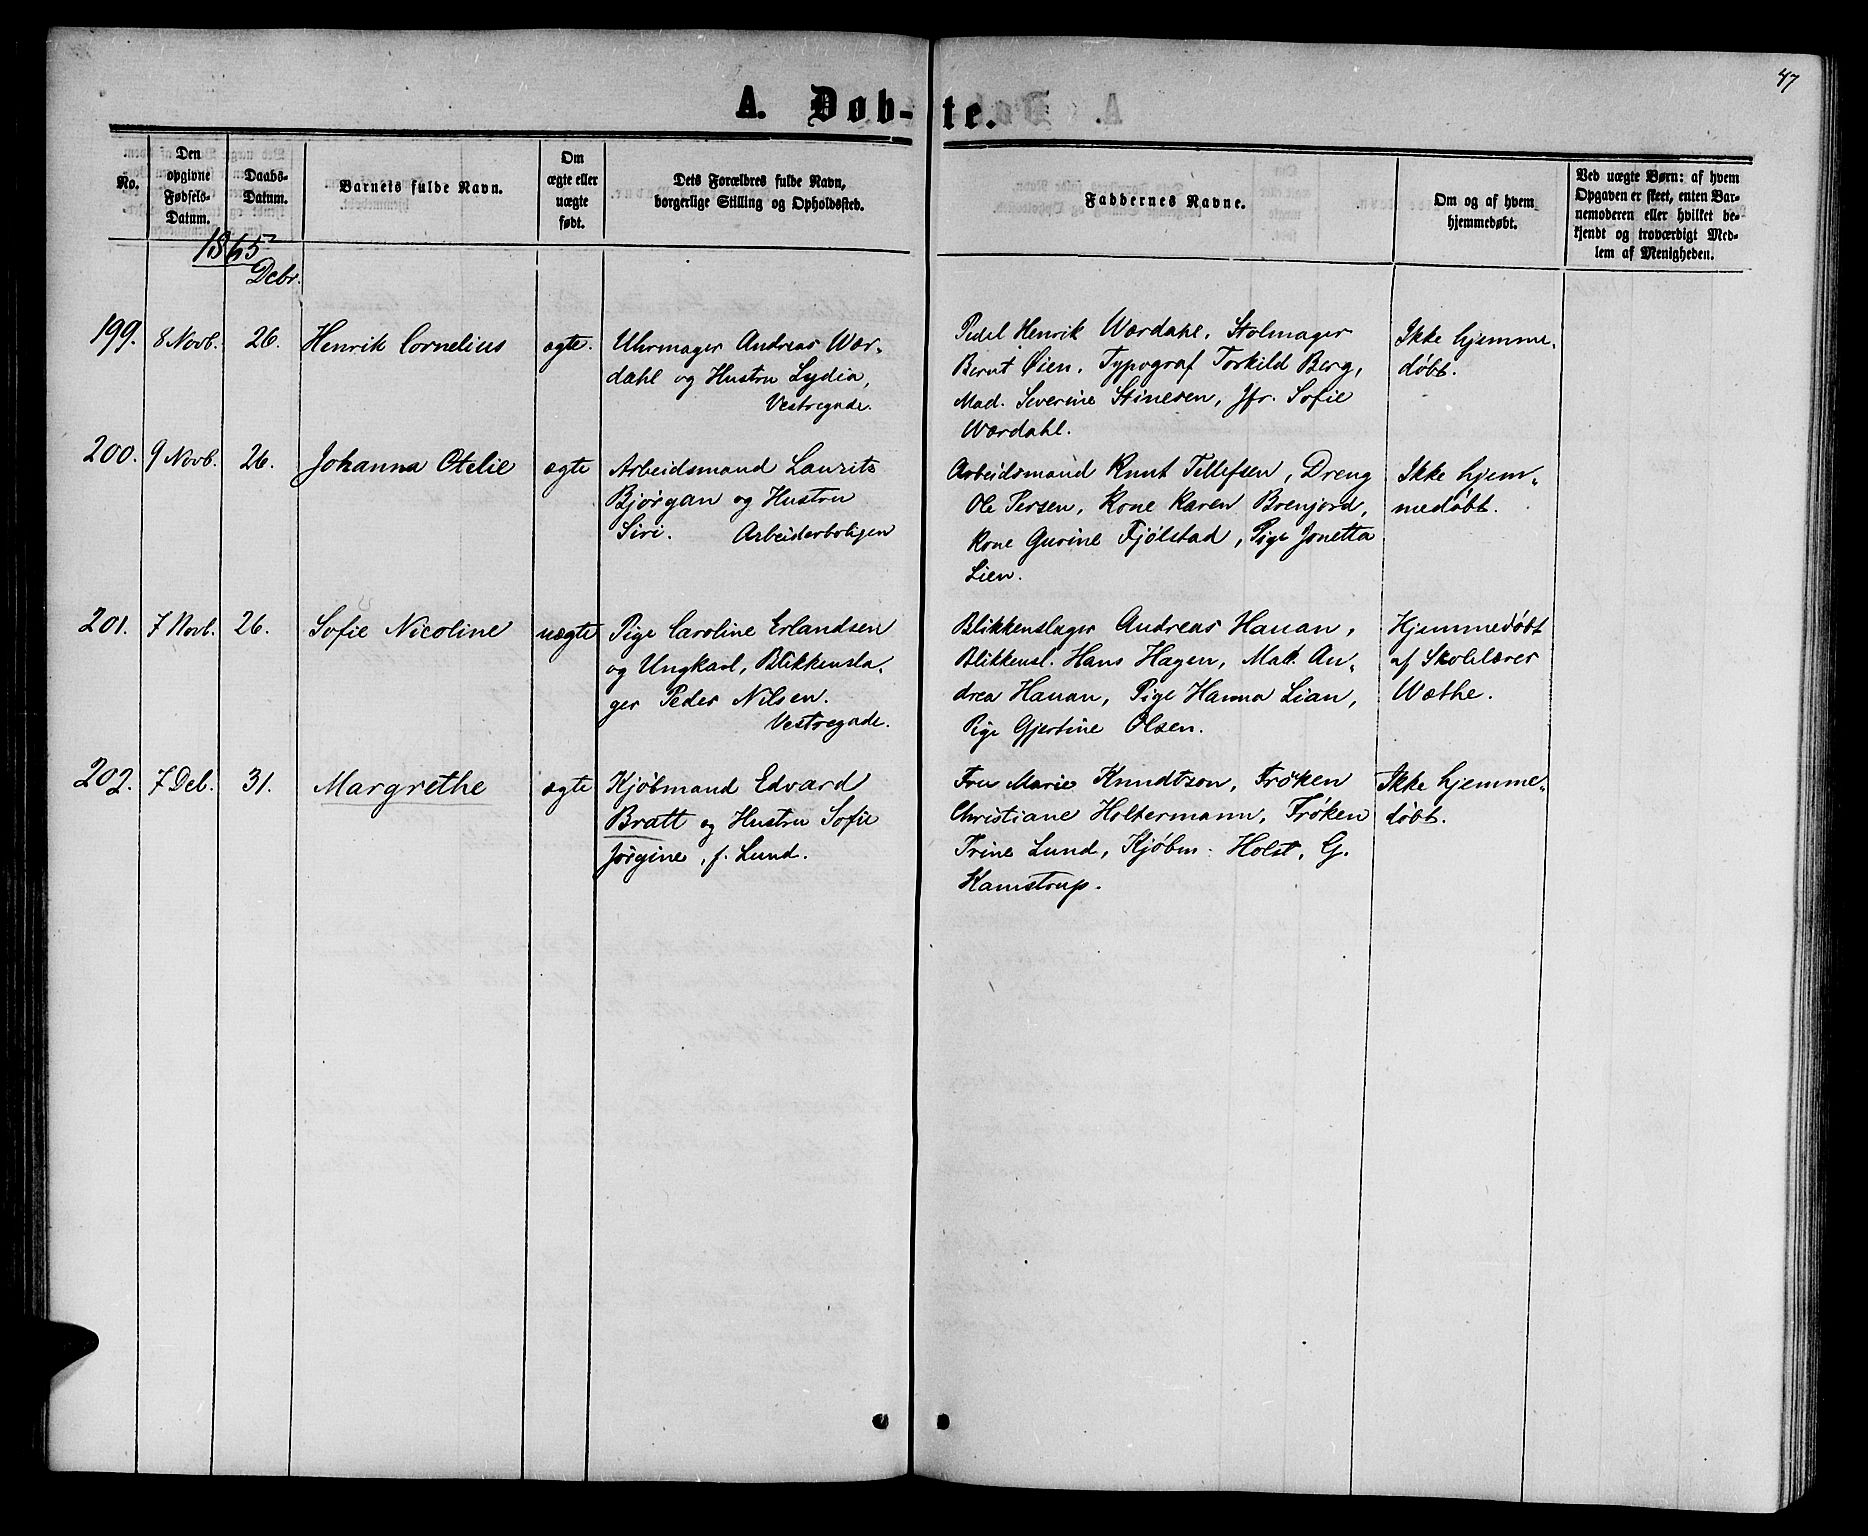 47
A. Døb-te.
No.
Den
opgivne
Fødsels-
Datum.
Daabs-
Datum.
Barnets fulde Navn.
Om
ægte eller
uægte
født.
Dets Forældres fulde Navn,
borgerlige Stilling og Opholdssted.
Faddernes Navne.
Om og af hvem
hjemmedøbt.
Ved uægte Børn: af hvem
Opgaven er skeet, enten Bar-
nemoderen eller hvilket be-
kjendt og troværdigt Med-
lem af Menigheden.
1865
Debr.
199. 8 Novb. 26. Henrik Cornelius ægte. Uhrmager Andreas Wær-
dahl og Hustru Lydia,
Vestregade.
Pedel Henrik Wærdahl, Stolmager
Bernt Øien, Typograf Torkild Berg,
Mad. Severine Stinesen, Jfr. Sofie
Wærdahl.
Ikke hjemme-
døbt.
200. 9 Novb. 26. Johanna Otelie ægte Arbeidsmand Laurits
Bjørgan og Hustru
Siri. Arbeiderboligen
Arbeidsmand Knut Tellefsen, Dreng
Ole Persen, Kone Karen Brenjord,
Kone Gurine Fjølstad, Pige Jonetta
Lien.
Ikke hjem-
medøbt.
201. 7 Novb. 26. Sofie Nicoline uægte Pige Caroline Erlandsen
og Ungkarl, Blikkensla-
ger Peder Nilsen.
Vestregade.
Blikkenslager Andreas Hauan,
Blikkensl. Hans Hagen, Mad. An-
drea Hauan, Pige Hanna Lian,
Pige Gjertine Olsen.
Hjemmedøbt
af Skolelærer
Wæthe.
202. 7 Deb. 31. Margrethe ægte Kjøbmand Edvard
Bratt og Hustru Sofie
Jørgine, f. Lund.
Fru Marie Knudtson, Frøken
Christiane Holtermann, Frøken
Trine Lund, Kjøbm. Holst, G.
Kamstrup.
Ikke hjemme-
døbt.